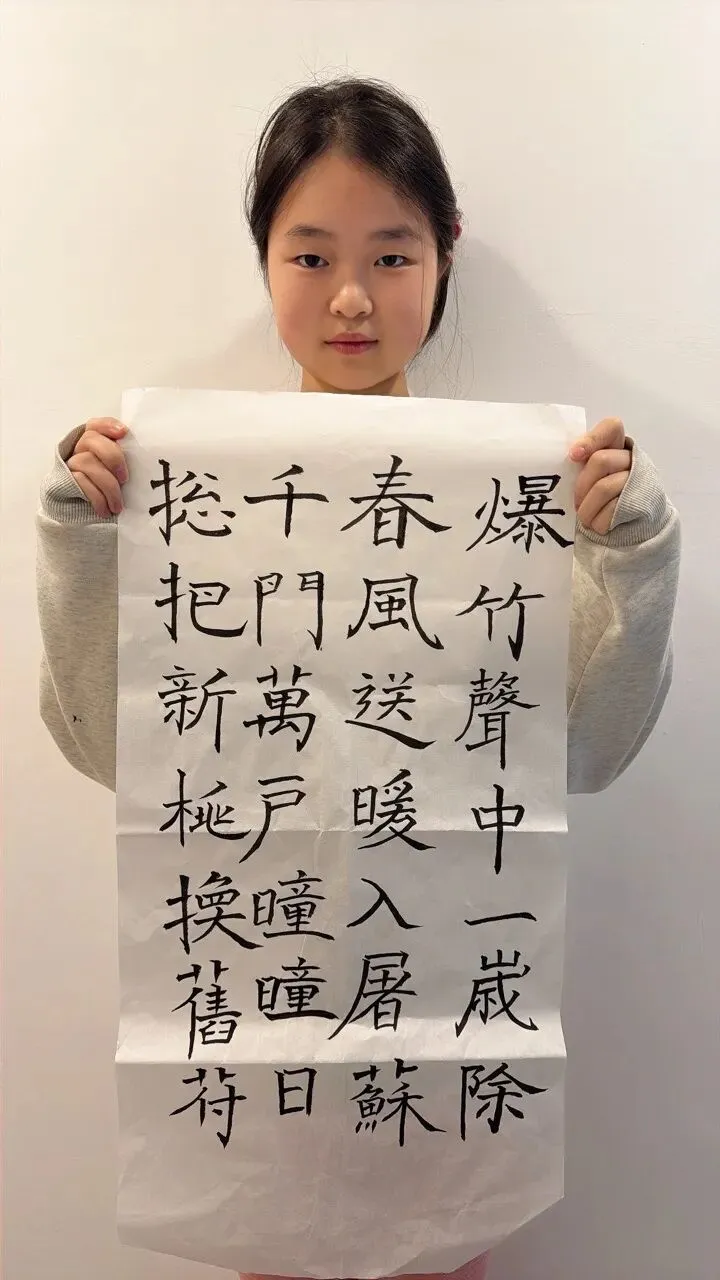 爆竹聲中一歲除
春風送暖入屠蘇
千門萬戸曈曈日
捴把新桃換舊苻